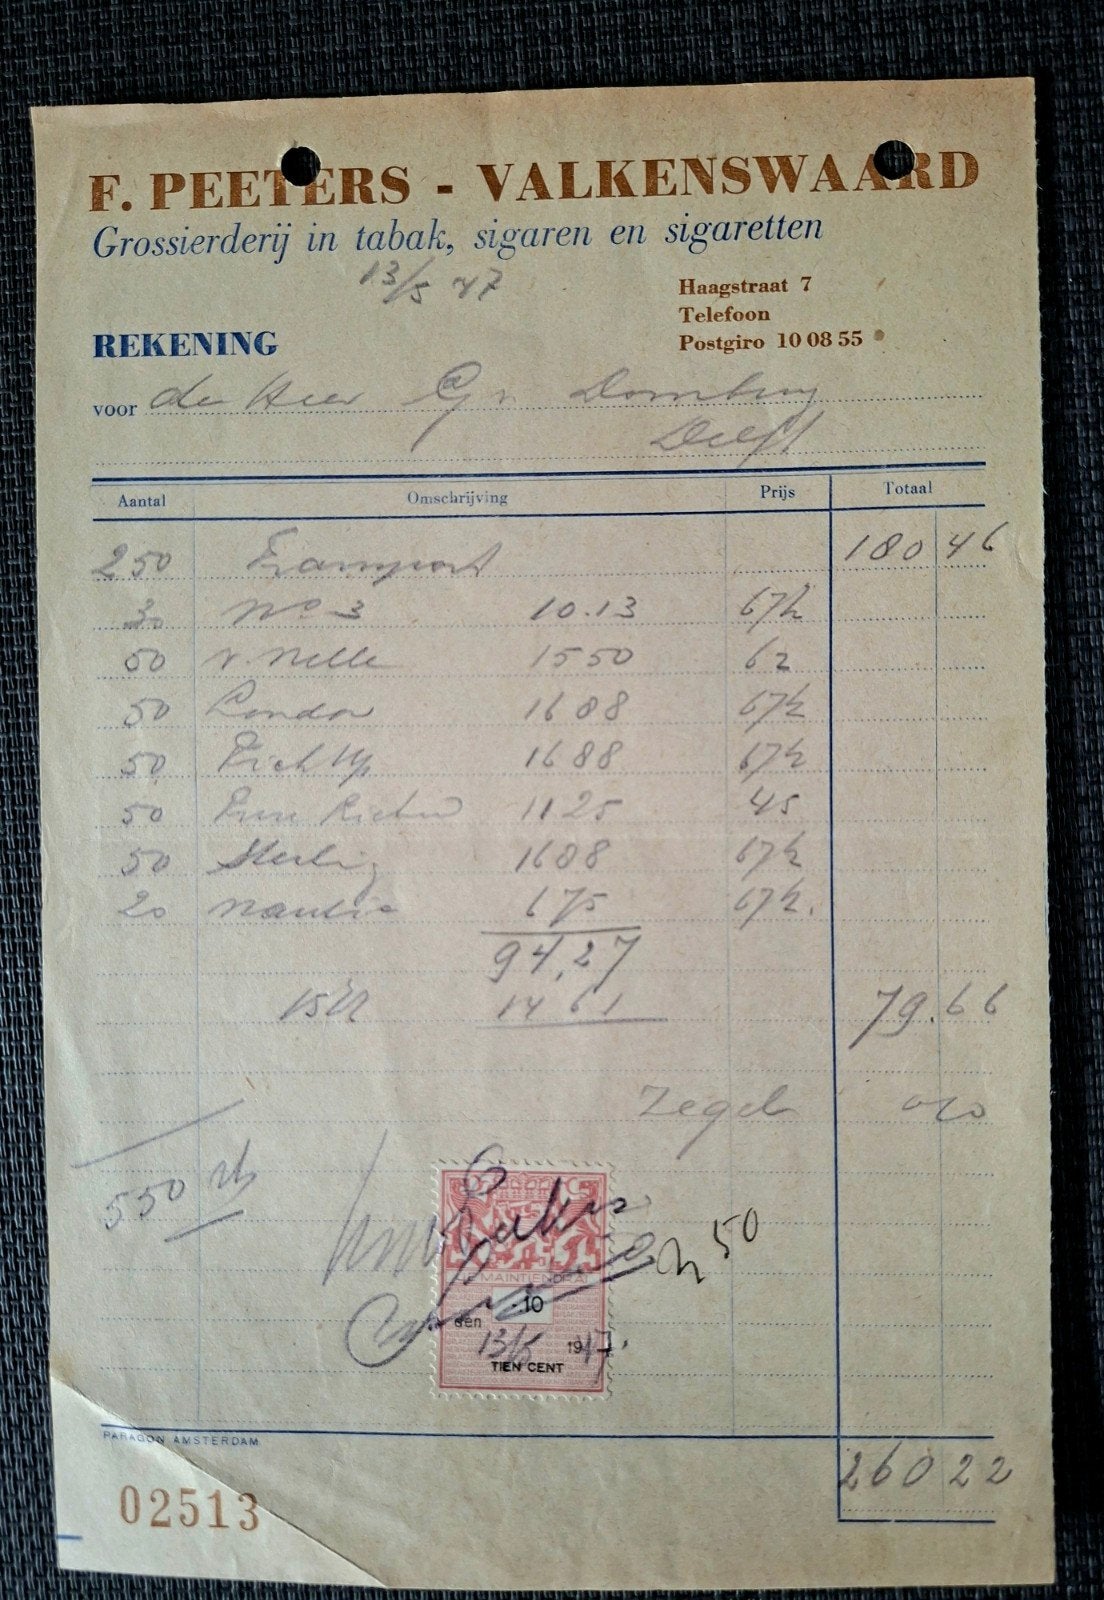 F. PEETERS - VALKENSWAARD
Grossierderij in tabak, sigaren en sigaretten
13/5 47
Haagstraat 7
Telefoon
Postgiro 10 08 55
REKENING
voor de Heer G v Domburg
Delft
Aantal Omschrijving Prijs Totaal
250 Transport 180 46
30 No 3 10.13 67½
50 v. Nelle 1550 62
50 1688 67½
50 1688 67½
50 1125 45
50 Sterling 1688 67½
20 675 67½.
94,27
15% 14 61 79.66
Zegel 010
550 st
50
MAINTIENDRAI
10
den 13/5 1947.
TIEN CENT
PARAGON AMSTERDAM
260 22
02513